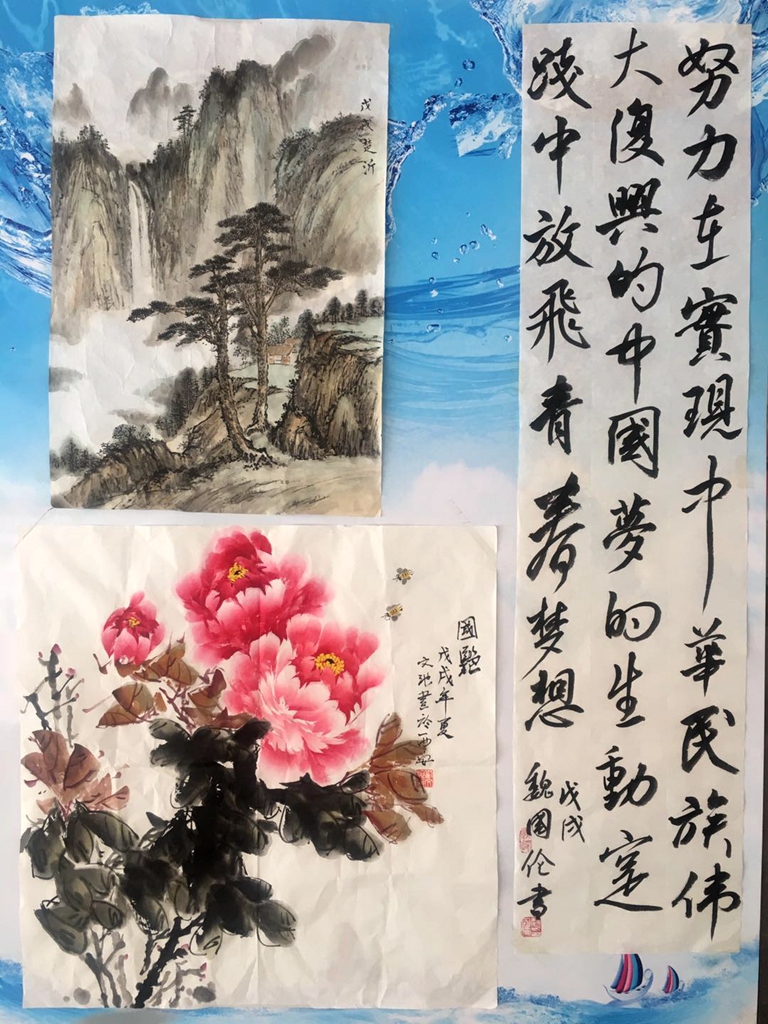 努力在實現中華民族伟
大復興的中國夢的生動寔
踐中放飛青春梦想
戊戌
魏國伦書
戊戌
國艷
戊戌年夏